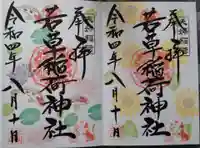 奉拝
若草稲荷神社
令和四年八月十日
奉拝
若草稲荷神社
令和四年八月十日